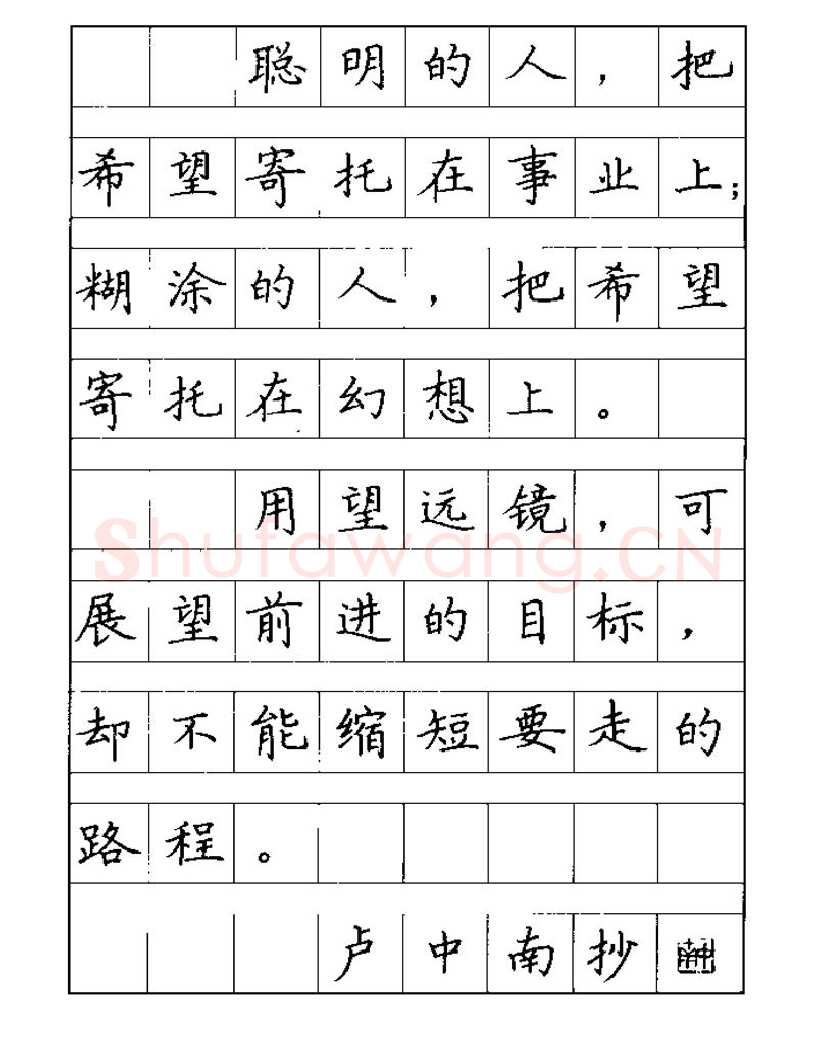 聪明的人，把
希望寄托在事业上；
糊涂的人，把希望
寄托在幻想上。
用望远镜，可
展望前进的目标，
却不能缩短要走的
路程。
卢中南抄
Shufawang.CN